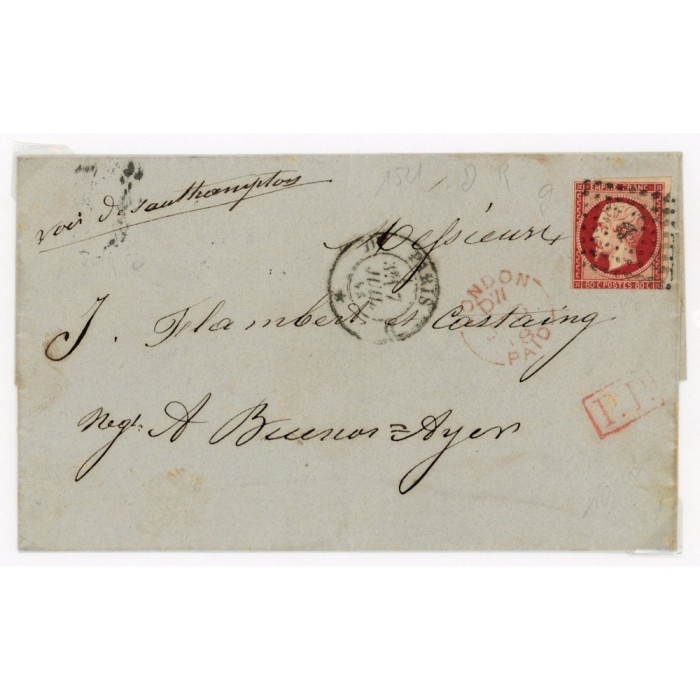 voie de Southampton
Messieurs
J. Flambert et Castaing
Negts A Buenos=Ayres
EMPIRE FRANC
80 C POSTES 80 C
PARIS
LONDON
PAID
P.P.